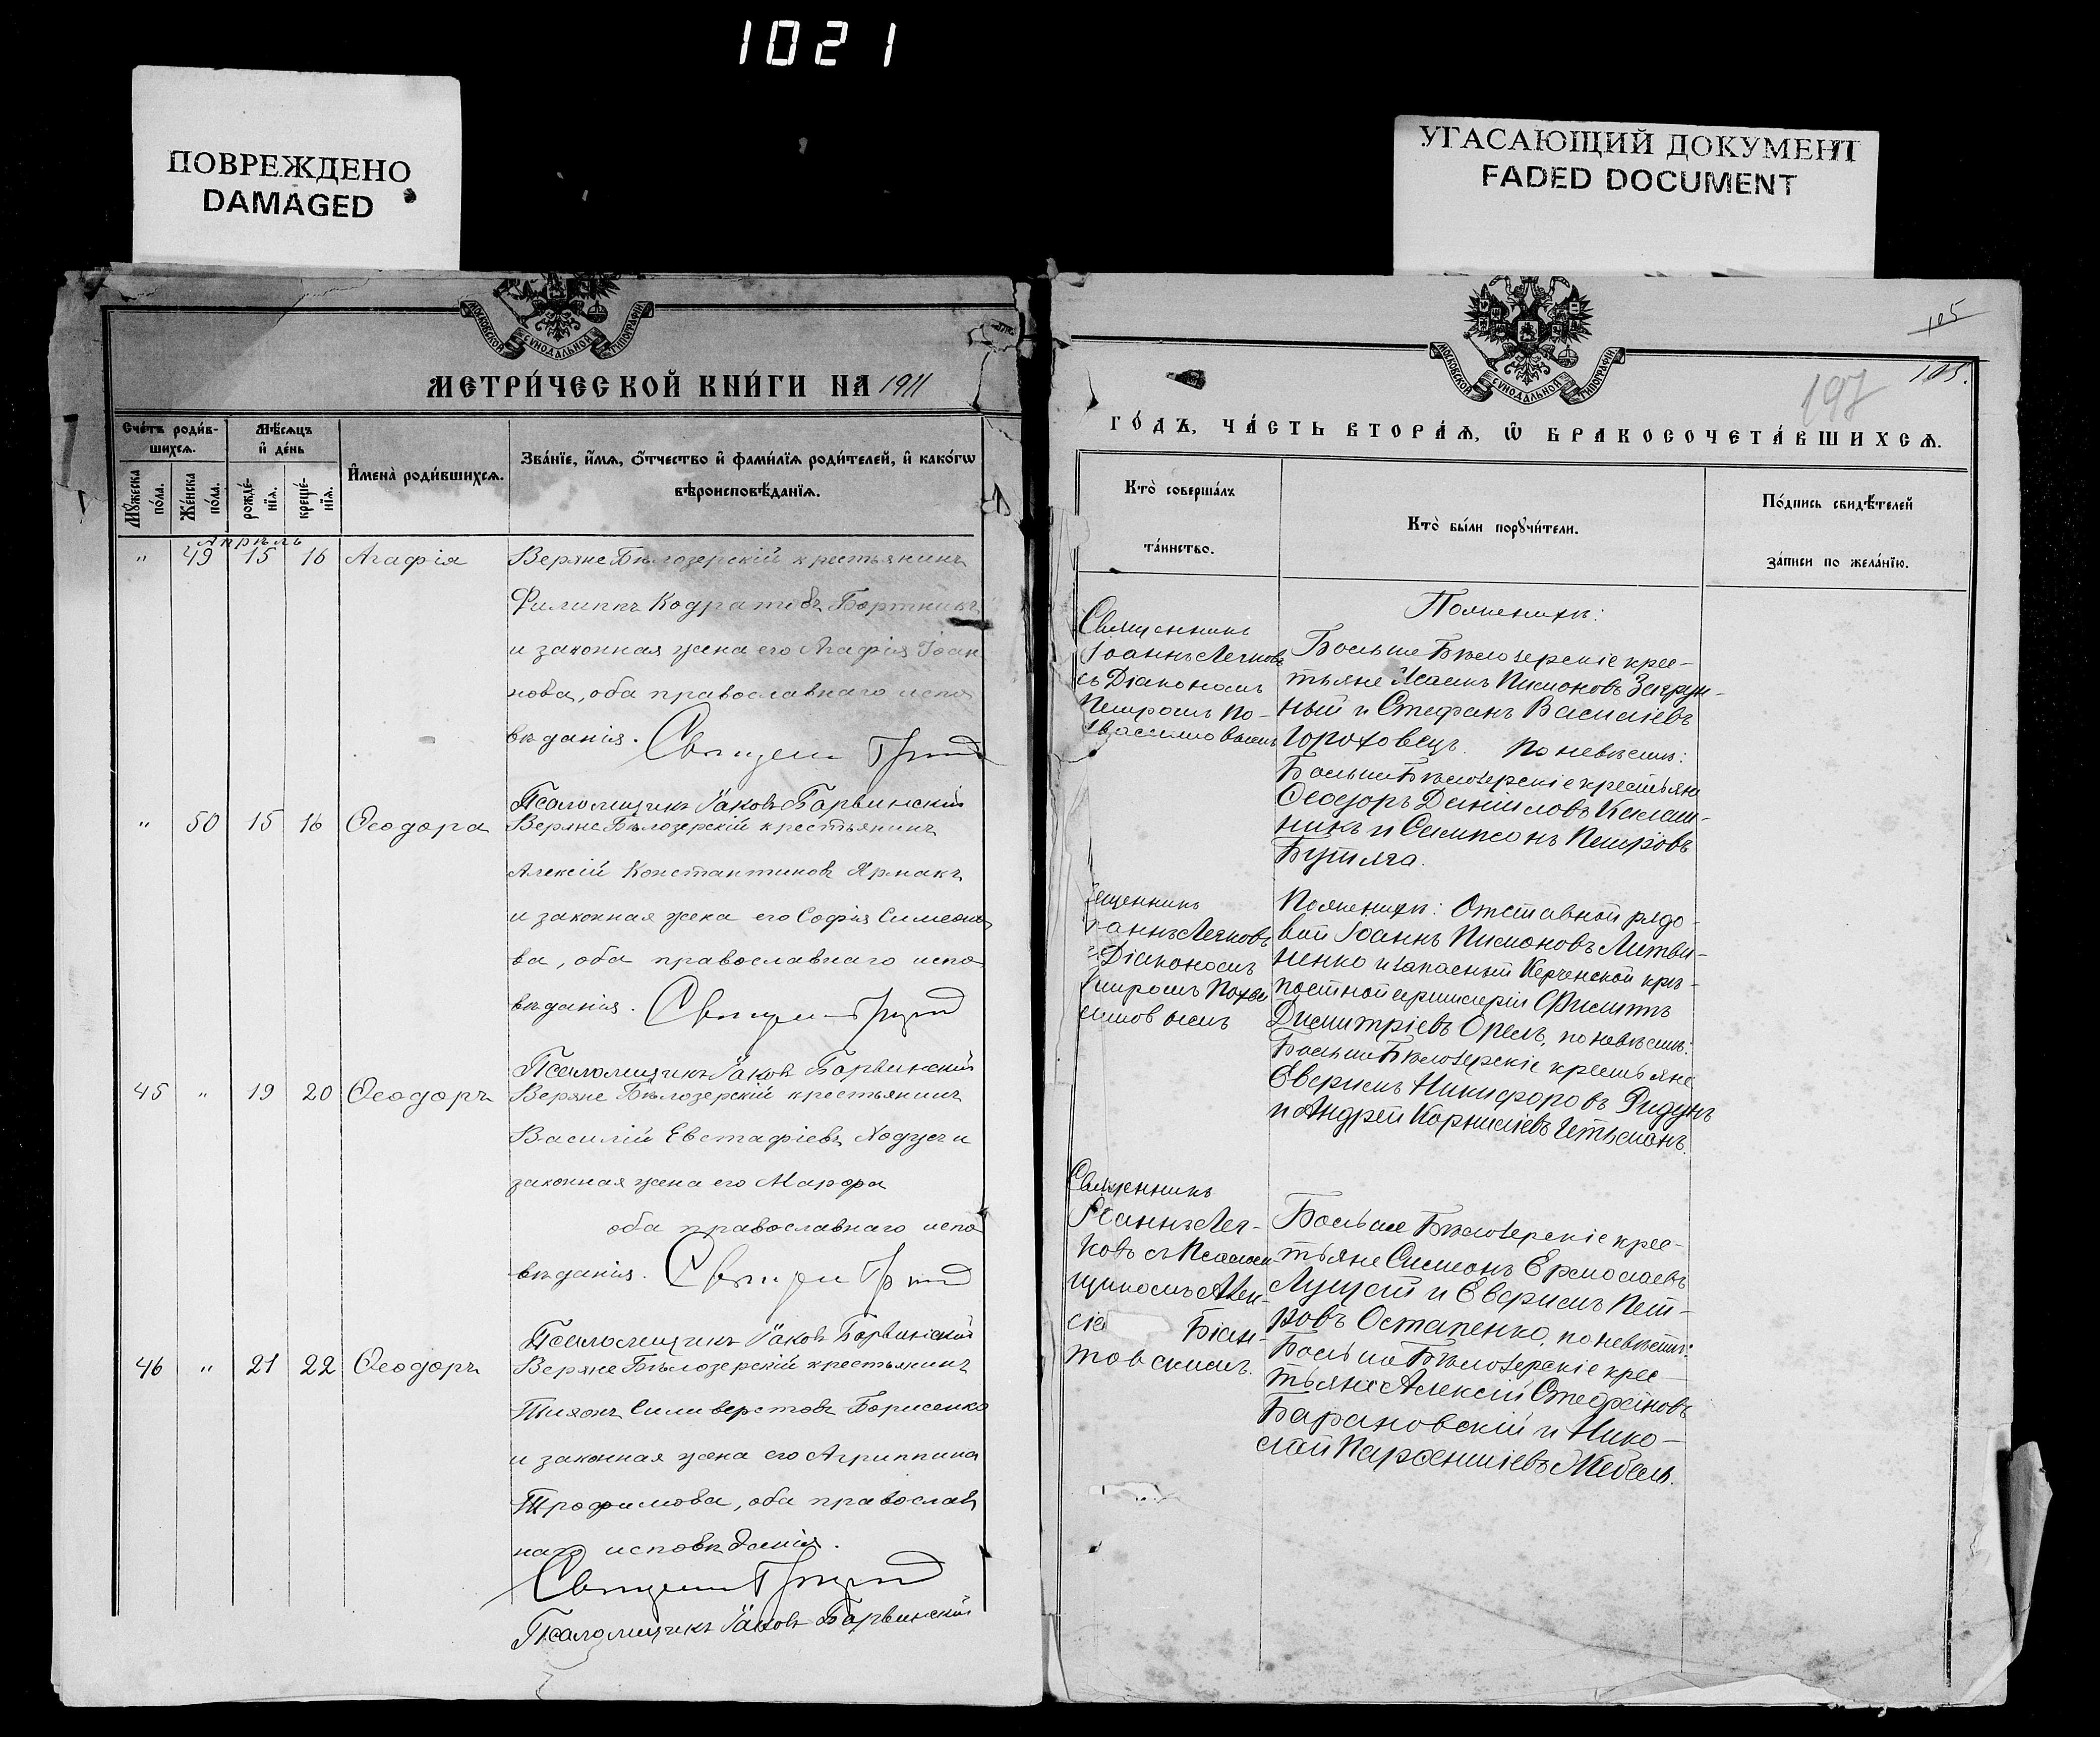 1021
ПОВРЕЖДЕНО
DAMAGED
УГАСАЮЩИЙ ДОКУМЕНТ
FADED DOCUMENT
МОСКОВСКОЙ СѴНОДАЛЬНОЙ ТИПОГРАФІИ
МЕТРИ́ЧЕСКОЙ КНИ́ГИ НА 1911
Сче́тъ роди́в-
шихсѧ.
Мѣ́сѧцъ
и҆ де́нь
Мꙋ́жеска
по́ла.
Же́нска
по́ла.
рожде́-
нїѧ.
креще́-
нїѧ.
И҆мена̀ роди́вшихсѧ.
Зва́нїе, и҆́мѧ, ѻ҆́тчество и҆ фами́лїѧ роди́телей, и҆ како́гѡ
вѣроисповѣ́данїѧ.
Апрѣль
" 49 15 16 Агафія Верхне Бѣлозерскій крестьянинъ
Филиппъ Кодратовъ Бортникъ
и законная жена его Агафія Іоан
нова, оба православнаго испо
вѣданія. Священ
Псаломщикъ Іаковъ Барвинскій
" 50 15 16 Ѳеодора Верхне Бѣлозерскій крестьянинъ
Алексій Константиновъ Ярмакъ
и законная жена его Софія Симеоно
ва, оба православнаго испо
вѣданія. Священ
Псаломщикъ Іаковъ Барвинскій
45 " 19 20 Ѳеодоръ Верхне Бѣлозерскій крестьянинъ
Василій Евстафіевъ Ходусъ и
законная жена его Марфа
оба православнаго испо
вѣданія. Священ
Псаломщикъ Іаковъ Барвинскій
46 " 21 22 Ѳеодоръ Верхне Бѣлозерскій крестьянинъ
Тихонъ Силиверстовъ Борисенко
и законная жена его Агриппина
Трофимова, оба православ
наго исповѣданія.
Священ
Псаломщикъ Іаковъ Барвинскій
МОСКОВСКОЙ СѴНОДАЛЬНОЙ ТИПОГРАФІИ
105
105.
197
ГО́ДЪ, ЧА́СТЬ ВТОРА́Ѧ, Ѡ҆ БРАКОСОЧЕТА́ВШИХСѦ.
Кто̀ соверша́лъ
та́инство.
Кто̀ бы́ли порꙋчи́тели.
По́дпись свидѣ́телей
за́писи по жела́нїю.
Священникъ
Іоаннъ Легковъ
съ Діакономъ
Петромъ По-
хвасимовымъ
По женихѣ:
Больше Бѣлозерскіе крес-
тьяне Исаакъ Пимоновъ Загрун-
ный и Стефанъ Василіевъ
Гороховецъ. По невѣстѣ:
Больше Бѣлозерскіе крестьяне
Ѳеодоръ Даниловъ Калаш-
никъ и Сампсонъ Петровъ
Бутяга.
щенникъ
аннъ Легковъ
Діакономъ
По женихѣ: Отставной рядо-
вой Іоаннъ Пимоновъ Литви-
ненко и запасный Керченской крѣ-
постной артиллеріи Филиппъ
Димитріевъ Орелъ, по невѣстѣ:
Больше Бѣлозерскіе крестьяне
Еверимъ Никифоровъ Ридунъ
и Андрей Корниліевъ Гетьманъ.
Священникъ
Іоаннъ Лег-
ковъ съ Псалом-
щикомъ Алек-
сіе Біан-
товскимъ.
Больше Бѣлозерскіе крес-
тьяне Симеонъ Ермолаевъ
Лущай и Еверимъ Пет-
ровъ Остапенко, по невѣстѣ:
Больше Бѣлозерскіе крес-
тьяне Алексій Стефановъ
Барановскій и Нико-
лай Парфеніевъ Мебель.